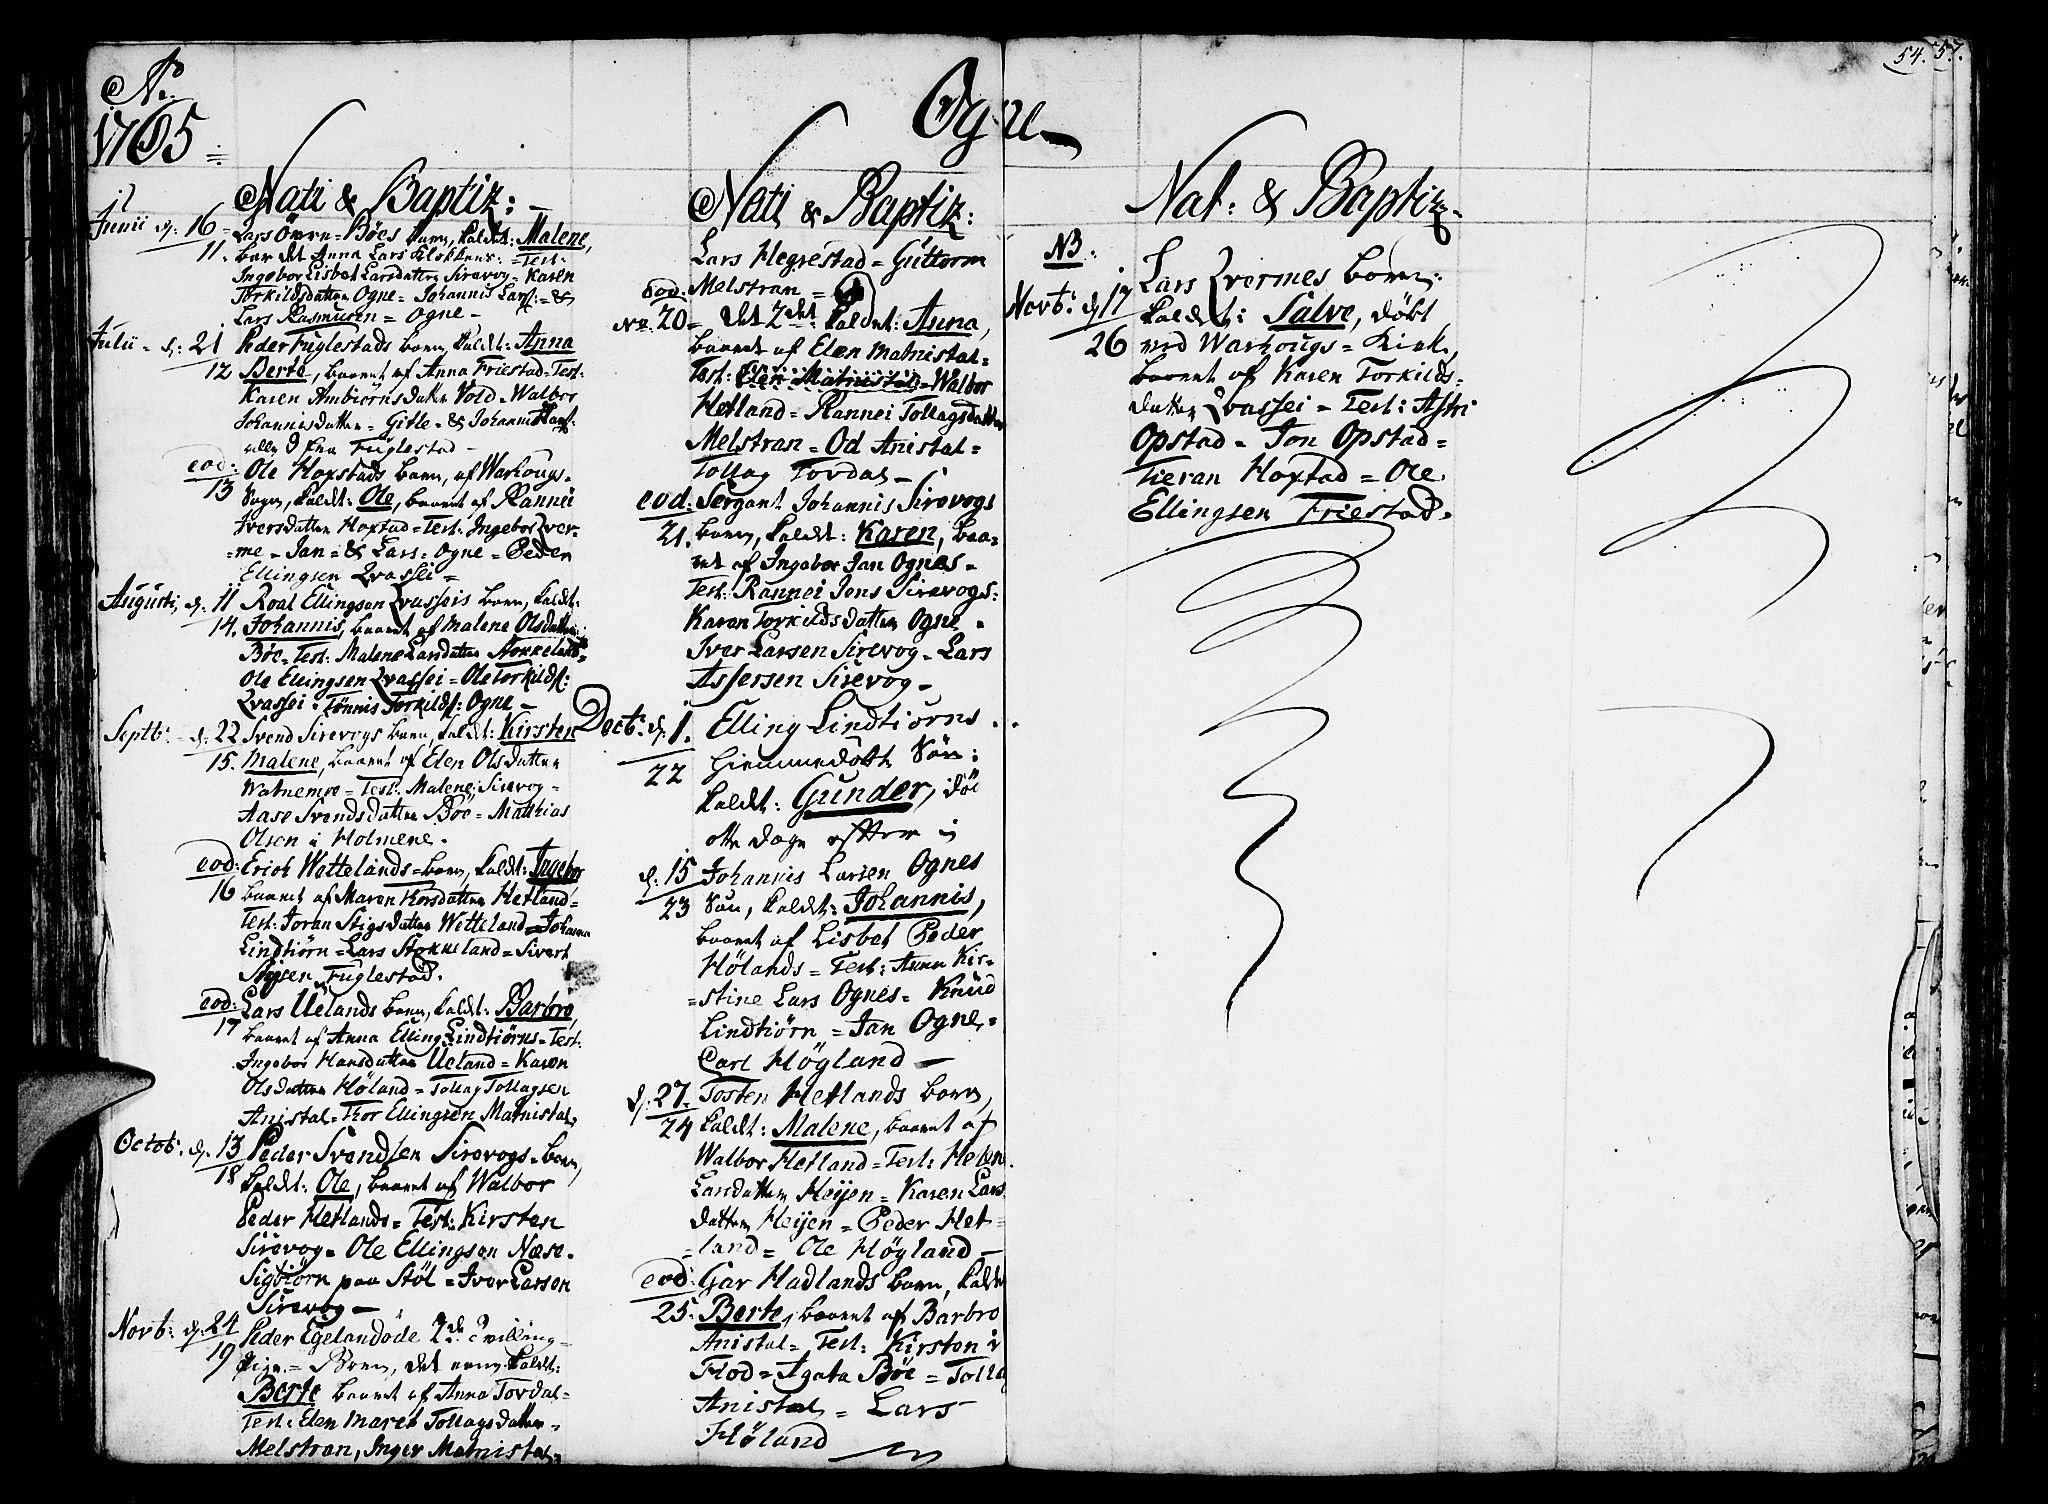 Ao
1765
Ogne
54. 57.
Nati & Baptiz:
Junii d: 16 Lars Övre-Böes barn, kaldet: Malene,
11. bar det Anna Lars = Test:
Ingebor Lisbet Larsdatter Sirevog = Karen
Torkildsdatter Ogne = Johannis Lars: = &
Lars Rasmusen = Ogne -
Julii - d: 21 Peder Fuglestads barn, kaldt: Anna
12 Berte, baaret af Anna Friestad = Test:
Karen Ambiörnsdatter Vold = Walbor
Johannisdatter = Gitle = & Johannis
alle fra Fuglestad -
eod: Ole Hoxstads barn, af Warhougs-
13 Sogn, kaldt: Ole, baaret af Rannei
Iversdatter Hoxtad = Test: Ingebor Qver-
=me = Jan = & Lars: Ogne = Peder
Ellingsen Qvassei =
Augusti, d: 11 Roal Ellingsen Qvasseis barn, kaldt:
14. Johannis, baaret af Malene Olsdatter
Böe = Test: Malene Larsdatter Stokkeland=
Ole Ellingsen Qvassei = Ole Torkilds:
Qvassei = Tönnis Torkilds: Ogne -
Septb: d: 22 Svend Sirevogs barn, kaldt: Kirsten
15. Malene, baaret af Elen Olsdatter
Watnemoe = Test: Malene Sirevog =
Aase Svendsdatter Böe = Matthias
Olsen i Holmene.
eod: Erich Wettelands = barn, kaldt: Ingebor
16 baaret af Maren Korsdatter Hetland=
Test: Joran Stigsdatter Wetteland = Johanna
Lindtiörn = Lars Stokkeland = Sivert
Stigsen Fuglestad.
eod: Lars Uelands barn, kaldt: Barbro,
17 baaret af Anna Elling Lindtiörns = Test:
Ingebor Hansdatter Ueland = Karen
Olsdatter Höland = Tollag Tollagsen
Anistal = Thor Ellingsen Matnistal,
Octob: d: 13 Peder Svendsen Sirevogs = barn,
18 kaldt: Ole, baaret af Walbor
Peder Hetlands = Test: Kirsten
Sirevog = Ole Ellingsen Næse -
Sigbiörn paa Stöl = Iver Larsen
Sirevog -
Novb: d: 24 Peder Egelandöde 2de Tvilling=
19 Pige = Börn, det eene kaldt:
Berte baaret af Anna Tordal=
Test: Elen Maret Tollagsdatter =
Melstran, Inger Matnistal =
Nati & Baptiz:
Lars Hegrestad = Guttorm
eod: Melstran =
No: 20 - det 2det kaldet: Anna,
baaret af Elen Matnistal=
Test: Elen Matnistal = Walbor
Hetland = Rannei Tollagsdatter
Melstran = Od Anistal =
Tollag Tordal -
eod: Sergant Johannis Sirevogs
21. barn, kaldt: Karen, baa-
ret af Ingebor Jan Ognes =
Test: Rannei Jons Sirevogs =
Karen Torkildsdatter Ogne =
Iver Larsen Sirevog = Lars
Assersen Sirevog -
Decb: d: 1. Elling Lindtiörns
22 hiemmedöbt Sön:
kaldt: Gunder, död
otte dage efter
d: 15 Johannis Larsen Ognes
23 Sön, kaldt: Johannis,
baaret af Lisbet Peder
Hölands = Test: Anna Kir=
=stine Lars Ognes = Knud
Lindtiörn = Jan Ogne =
Carl Högland -
d: 27. Tosten Hetlands barn,
24 kaldt: Malene, baaret af
Walbor Hetland = Test: Helene
Larsdatter Heijen = Karen Lars
datter Heijen = Peder Het=
=land = Ole Högland -
eod: Gar Hadlands barn, kaldt
25. Berte, baaret af Barbro
Anistal = Test: Kirsten i
Flod = Agata Böe = Tollag
Anistal = Lars
Höland
Nat: & Baptiz.
NB. Lars Qvermes barn:
Novb: d 17 kaldet: Salve, döbt
26 ved Warhougs = Kirke,
baaret af Karen Torkilds=
datter Qvassei = Test: Astri
Opstad = Jon Opstad =
Tieran Hoxtad = Ole
Ellingsen Friestad.